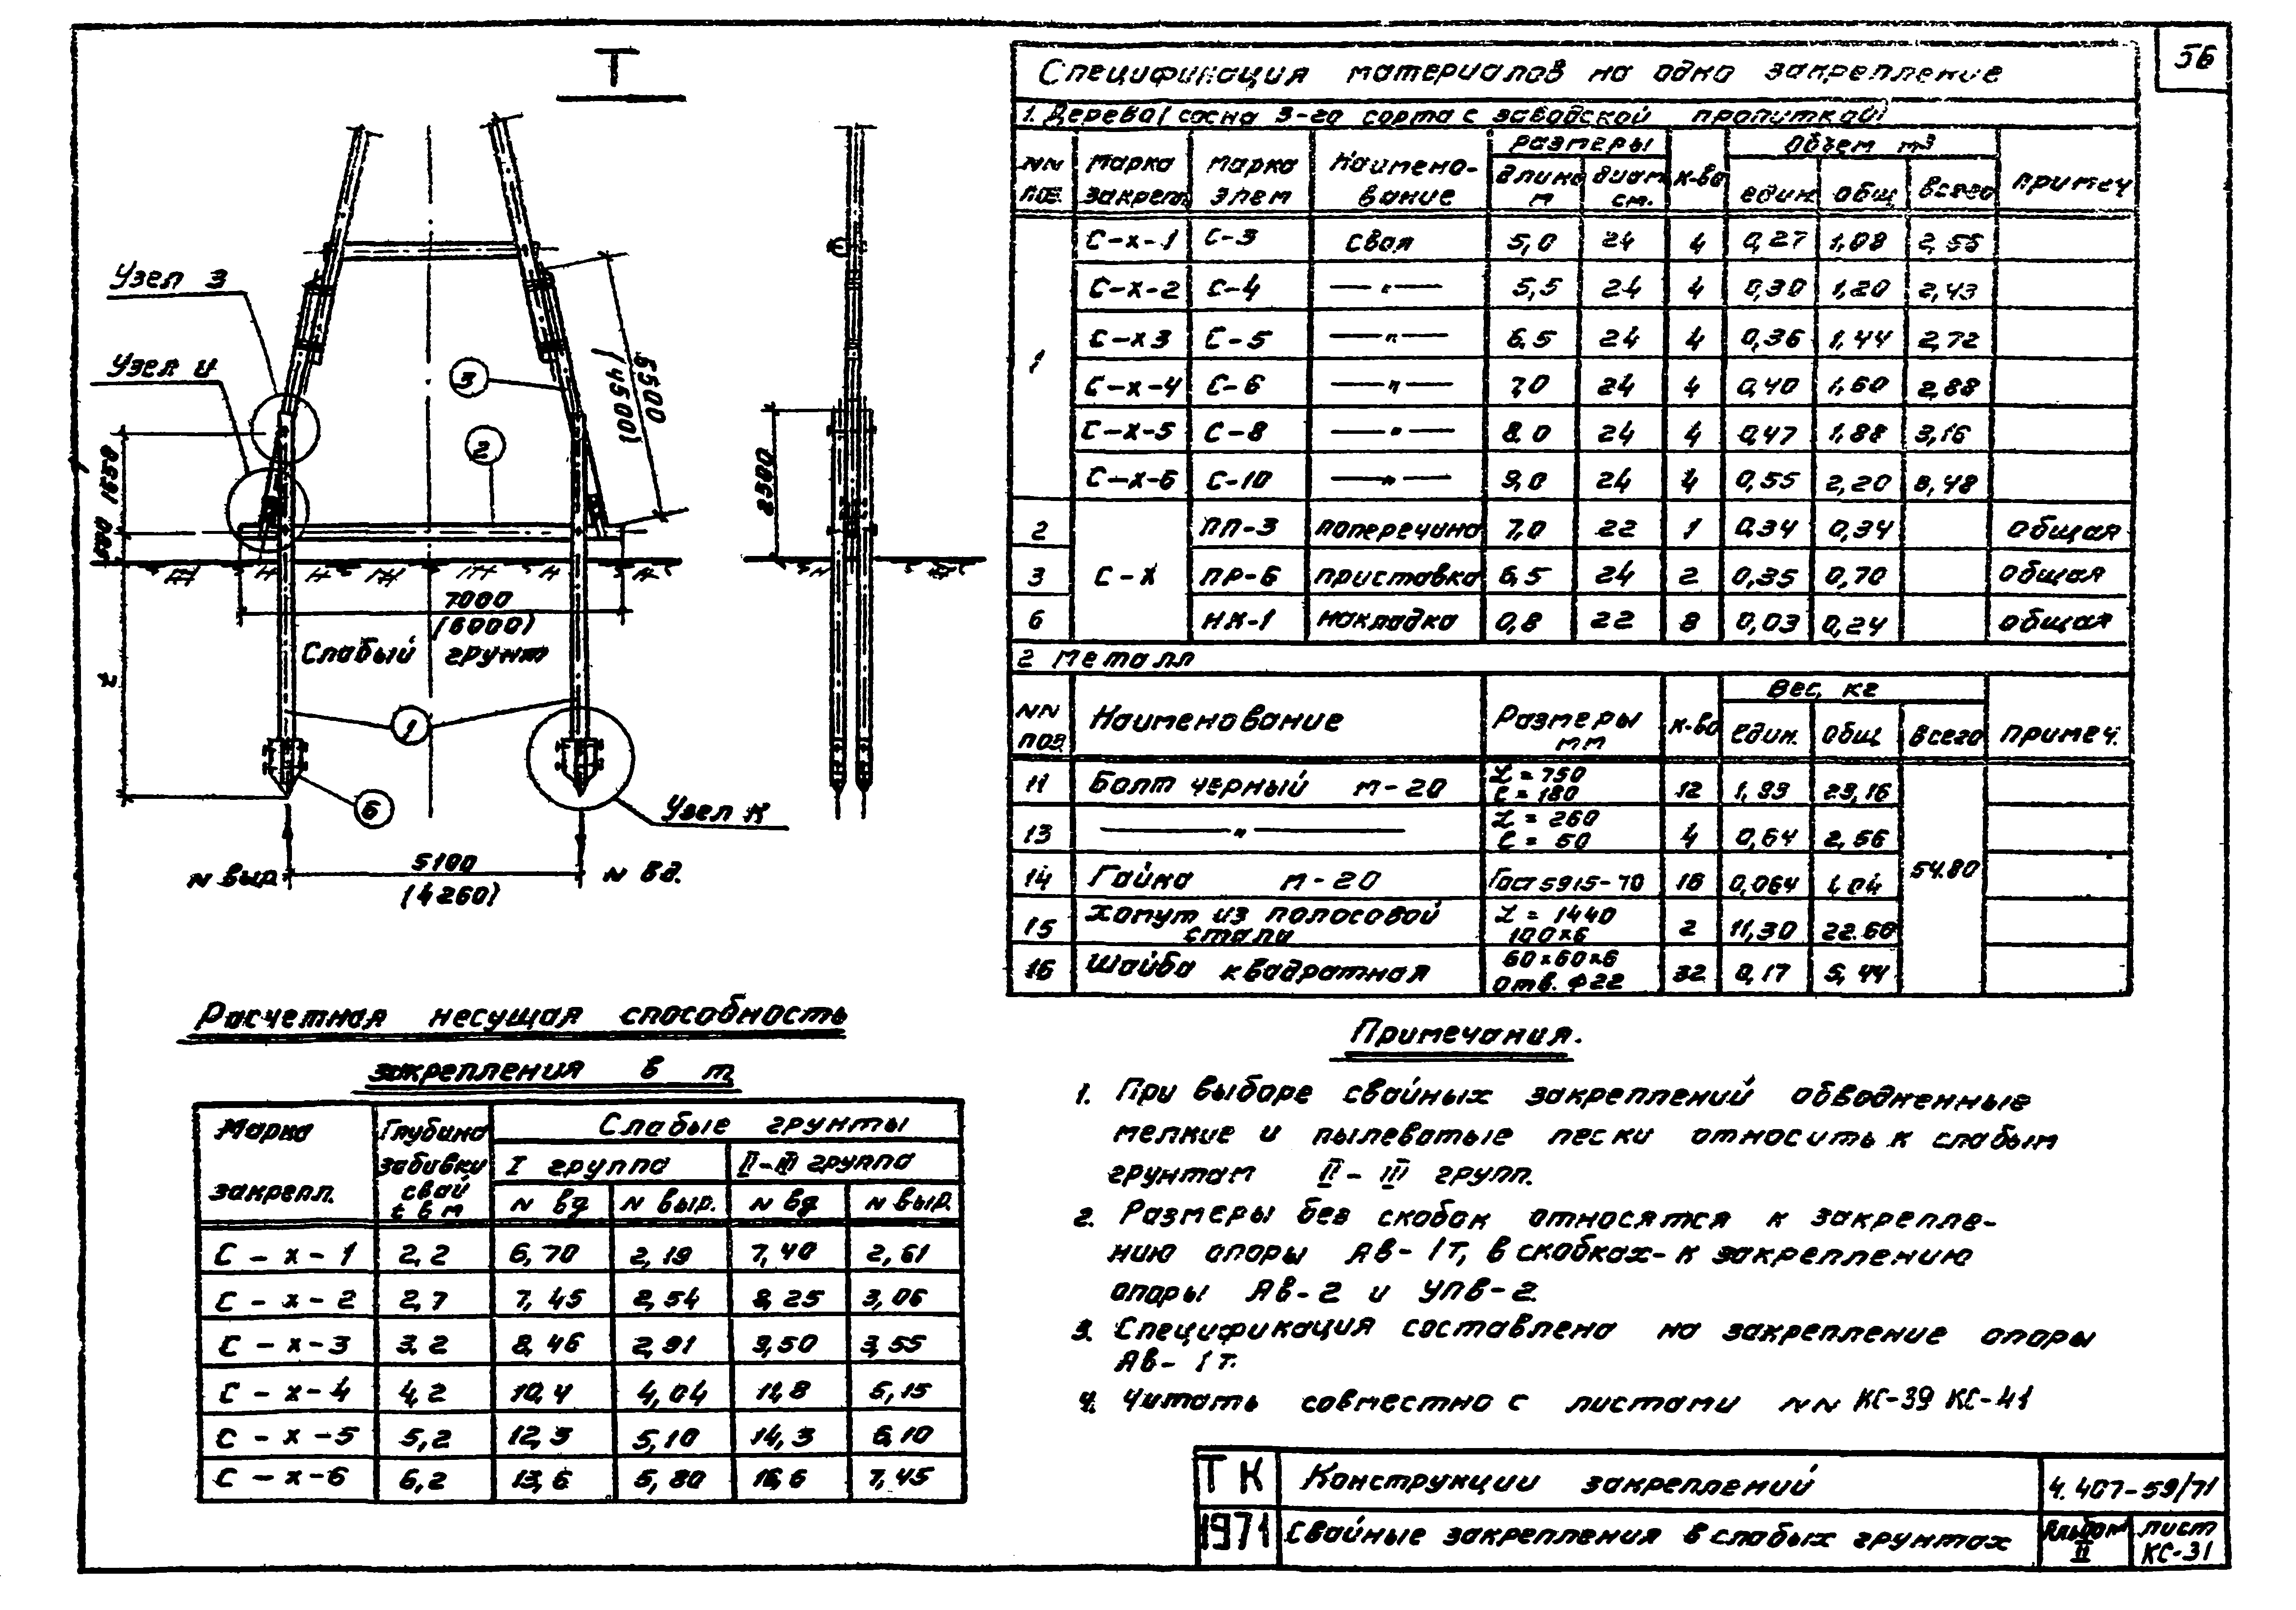 56
Т
Узел З
Узел И
3
2
5500
(4500)
1650
500
2500
7000
(6000)
Слабый грунт
1
6
Узел К
N выр.
5100
(4260)
N вд.
Спецификация материалов на одно закрепление
1. Дерево (сосна 3-го сорта с заводской пропиткой)
NN поз. марка закреп. марка элем Наимено-вание размеры длина м диам см. к-во Объем м³ един. общ всего примеч
1 С-х-1 С-3 свая 5,0 24 4 0,27 1,08 2,36
С-х-2 С-4 —"— 5,5 24 4 0,30 1,20 2,43
С-х3 С-5 —"— 6,5 24 4 0,36 1,44 2,72
С-х-4 С-6 —"— 7,0 24 4 0,40 1,60 2,88
С-х-5 С-8 —"— 8,0 24 4 0,47 1,88 3,16
С-х-6 С-10 —"— 9,0 24 4 0,55 2,20 3,48
2 С-х ПП-3 поперечина 7,0 22 1 0,34 0,34 общая
3 ПР-6 приставка 6,5 24 2 0,35 0,70 общая
6 НК-1 накладка 0,8 22 8 0,03 0,24 общая
2 Металл
NN поз. Наименование Размеры мм к-во Вес, кг един. общ всего примеч.
11 Болт черный м-20 L = 750 ℓ = 180 12 1,93 23,16 54.80
13 —"— L = 260 ℓ = 50 4 0,64 2,56
14 Гайка м-20 Гост 5915-70 16 0,064 1,04
15 Хомут из полосовой стали L = 1440 100×6 2 11,30 22.60
16 Шайба квадратная 60×60×6 отв. Ф22 32 0,17 5,44
Расчетная несущая способность
закрепления в т
Марка закрепл. Глубина забивки свай t в м Слабые грунты
I группа II-III группа
N вд N выр. N вд N выр.
С-х-1 2,2 6,70 2,19 7,40 2,61
С-х-2 2,7 7,45 2,54 8,25 3,06
С-х-3 3,2 8,46 2,91 9,50 3,55
С-х-4 4,2 10,4 4,04 11,8 5,15
С-х-5 5,2 12,3 5,10 14,3 6,10
С-х-6 6,2 13,6 5,80 16,6 7,45
Примечания.
1. При выборе свайных закреплений обводненные
мелкие и пылеватые пески относить к слабым
грунтам II - III групп.
2. Размеры без скобок относятся к закрепле-
нию опоры АВ-1т, в скобках - к закреплению
опоры АВ-2 и УПВ-2.
3. Спецификация составлена на закрепление опоры
АВ-1т.
4. Читать совместно с листами NN КС-39 КС-41
ТК Конструкции закреплений 4.407-59/71
1971 Свайные закрепления в слабых грунтах Альбом II лист КС-31